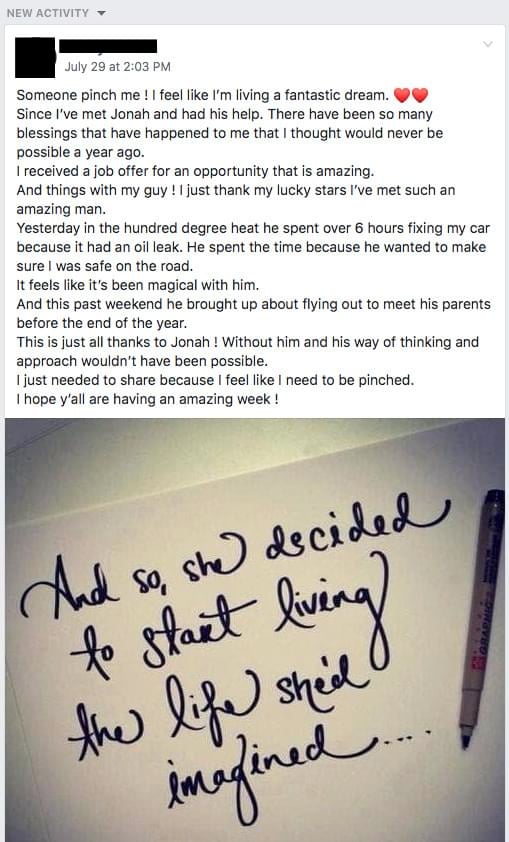 NEW ACTIVITY
July 29 at 2:03 PM
Someone pinch me ! I feel like I'm living a fantastic dream. ❤️❤️
Since I've met Jonah and had his help. There have been so many
blessings that have happened to me that I thought would never be
possible a year ago.
I received a job offer for an opportunity that is amazing.
And things with my guy ! I just thank my lucky stars I've met such an
amazing man.
Yesterday in the hundred degree heat he spent over 6 hours fixing my car
because it had an oil leak. He spent the time because he wanted to make
sure I was safe on the road.
It feels like it's been magical with him.
And this past weekend he brought up about flying out to meet his parents
before the end of the year.
This is just all thanks to Jonah ! Without him and his way of thinking and
approach wouldn't have been possible.
I just needed to share because I feel like I need to be pinched.
I hope y'all are having an amazing week !
And so, she decided
to start living
the life she'd
imagined....
GRAPHIC